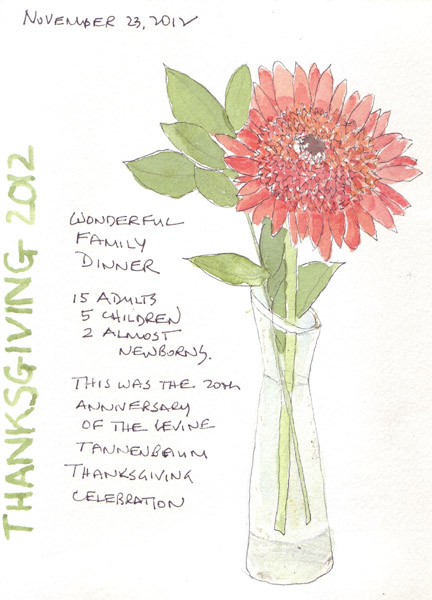 NOVEMBER 23, 2012
THANKSGIVING 2012
WONDERFUL
FAMILY
DINNER
15 ADULTS
5 CHILDREN
2 ALMOST
NEWBORNS.
THIS WAS THE 20TH
ANNIVERSARY
OF THE LEVINE
TANNENBAUM
THANKSGIVING
CELEBRATION